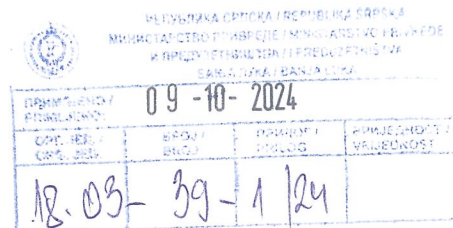 РЕПУБЛИКА СРПСКА / REPUBLIKA SRPSKA
МИНИСТАРСТВО ПРИВРЕДЕ / MINISTARSTVO PRIVREDE
И ПРЕДУЗЕТНИШТВА / I PREDUZETNIŠTVA
БАЊА ЛУКА / BANJA LUKA
ПРИМЉЕНО /
PRIMLJENO: 09 -10- 2024
ОРГ. ЈЕД. / БРОЈ / ПРИЛОГ / ВРИЈЕДНОСТ /
ORG. JED. BROJ PRILOG VRIJEDNOST
18.03- 39- 1 /24